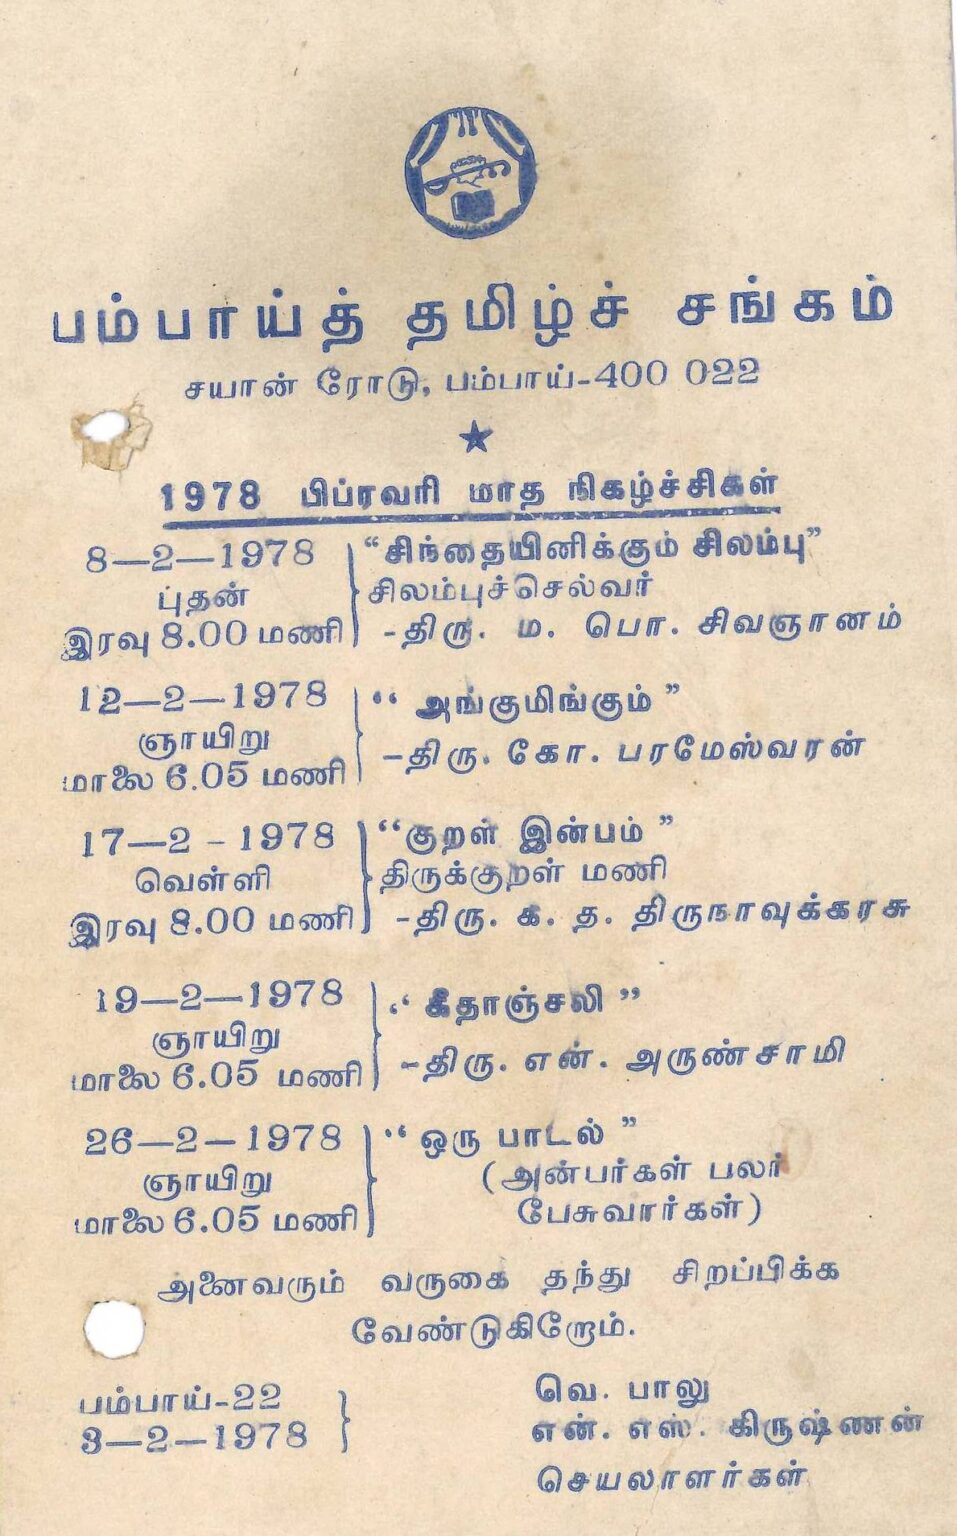 பம்பாய்த் தமிழ்ச் சங்கம்
சயான் ரோடு, பம்பாய்-400 022
1978 பிப்ரவரி மாத நிகழ்ச்சிகள்
8—2—1978
புதன்
இரவு 8.00 மணி
“சிந்தையினிக்கும் சிலம்பு”
சிலம்புச்செல்வர்
-திரு. ம. பொ. சிவஞானம்
12—2—1978
ஞாயிறு
மாலை 6.05 மணி
“ அங்குமிங்கும் ”
-திரு. கோ. பரமேஸ்வரன்
17—2 - 1978
வெள்ளி
இரவு 8.00 மணி
“குறள் இன்பம் ”
திருக்குறள் மணி
-திரு. க. த. திருநாவுக்கரசு
19—2—1978
ஞாயிறு
மாலை 6.05 மணி
“ கீதாஞ்சலி ”
-திரு. என். அருண்சாமி
26—2—1978
ஞாயிறு
மாலை 6.05 மணி
“ ஒரு பாடல் ”
(அன்பர்கள் பலர்
பேசுவார்கள்)
அனைவரும் வருகை தந்து சிறப்பிக்க
வேண்டுகிறோம்.
பம்பாய்-22
3—2—1978
வெ. பாலு
என். எஸ். கிருஷ்ணன்
செயலாளர்கள்